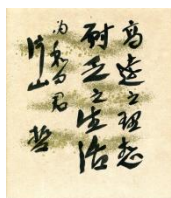 高遠之理想
耐乏之生活
為和男君
片山 哲